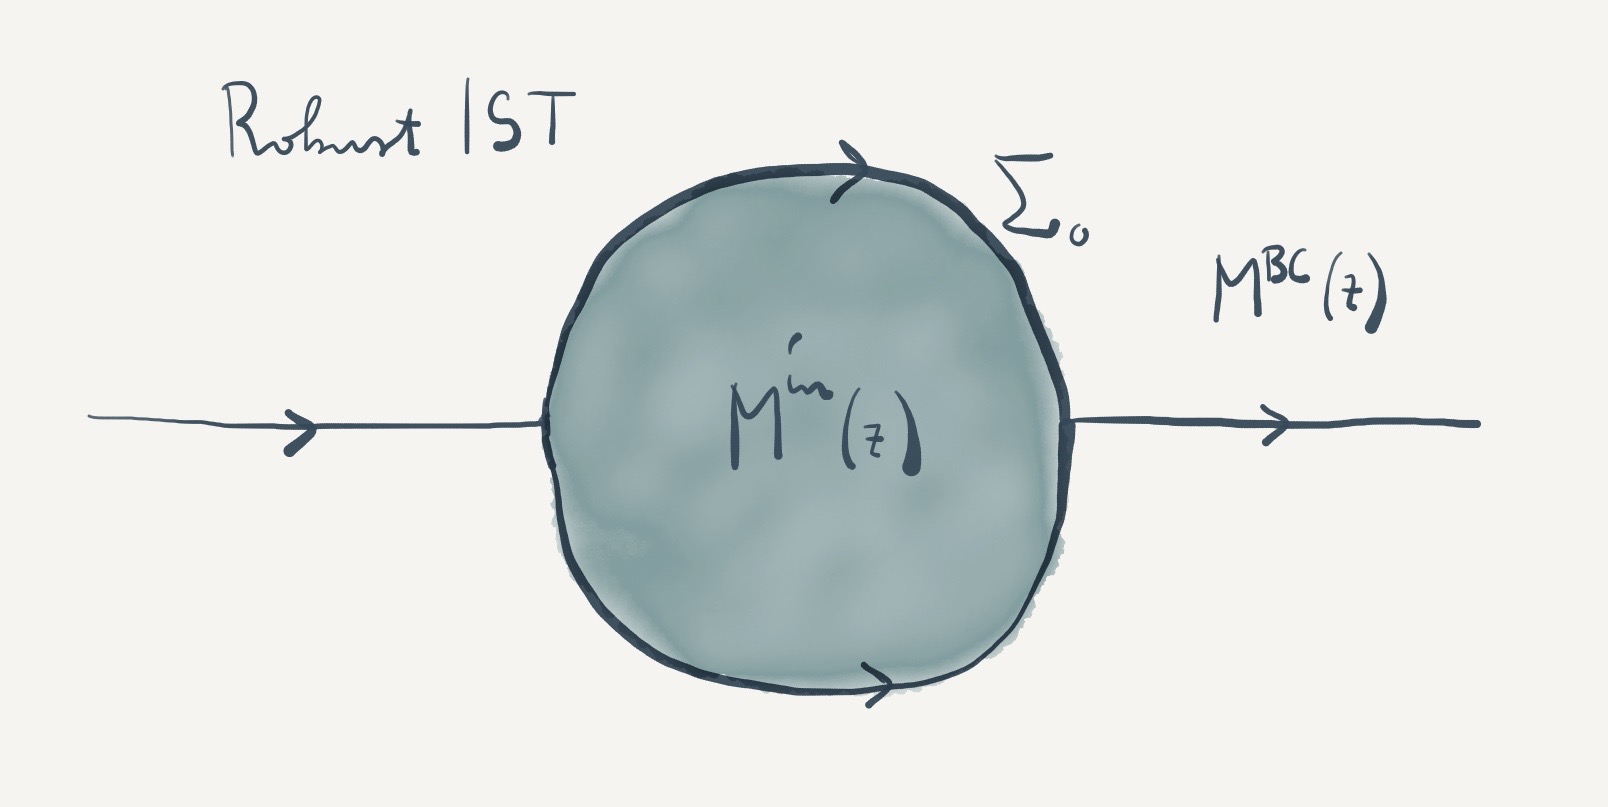 Robust IST
Σ₀
M^BC(z)
M^in(z)